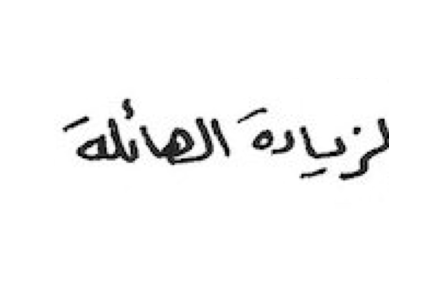 لزيادة الهائلة